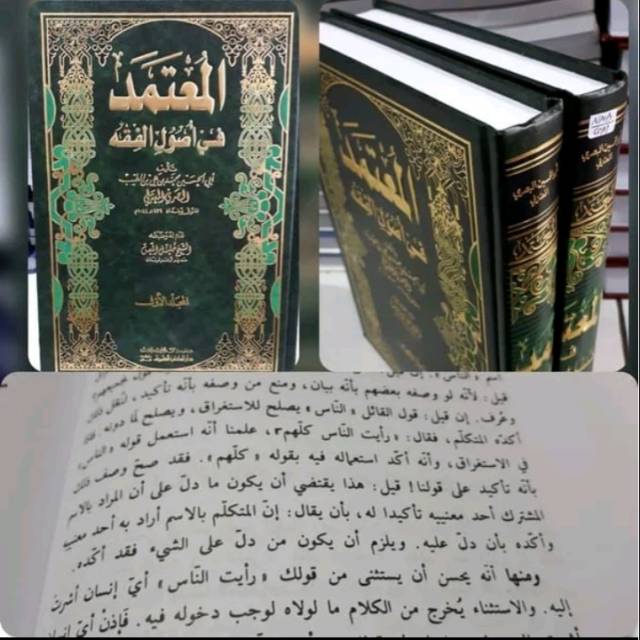 المعتمد
في أصول الفقه
تأليف
أبي الحسين محمد بن علي بن الطيب
البصري المعتزلي
المجلد الأول
المعتمد
في أصول الفقه
قيل: لأنه لو وصفه بعضهم بأنّه بيان، ومنع من وصفه بأنّه تأكيد، لنقل ذلك
وعُرف. إن قيل: قول القائل «الناس» يصلح للاستغراق، ويصلح لما دونه،
أكده المتكلم، فقال: «رأيت الناس كلهم»، علمنا أنّه استعمل قوله «الناس»
في الاستغراق، وأنّه أكّد استعماله فيه بقوله «كلّهم». فقد صحّ وصف ذلك
بأنّه تأكيد على قولنا! قيل: هذا يقتضي أن يكون ما دلّ على أن المراد بالاسم
المشترك أحد معنييه تأكيدا له، بأن يقال: إنّ المتكلّم بالاسم أراد به أحد معنييه
وأكّده بأن دلّ عليه. ويلزم أن يكون من دلّ على الشيء فقد أكّده.
ومنها أنّه يحسن أن يستثنى من قولك «رأيت النّاس» أيّ إنسان أشرت
إليه. والاستثناء يُخرج من الكلام ما لولاه لوجب دخوله فيه. فإذن أيّ